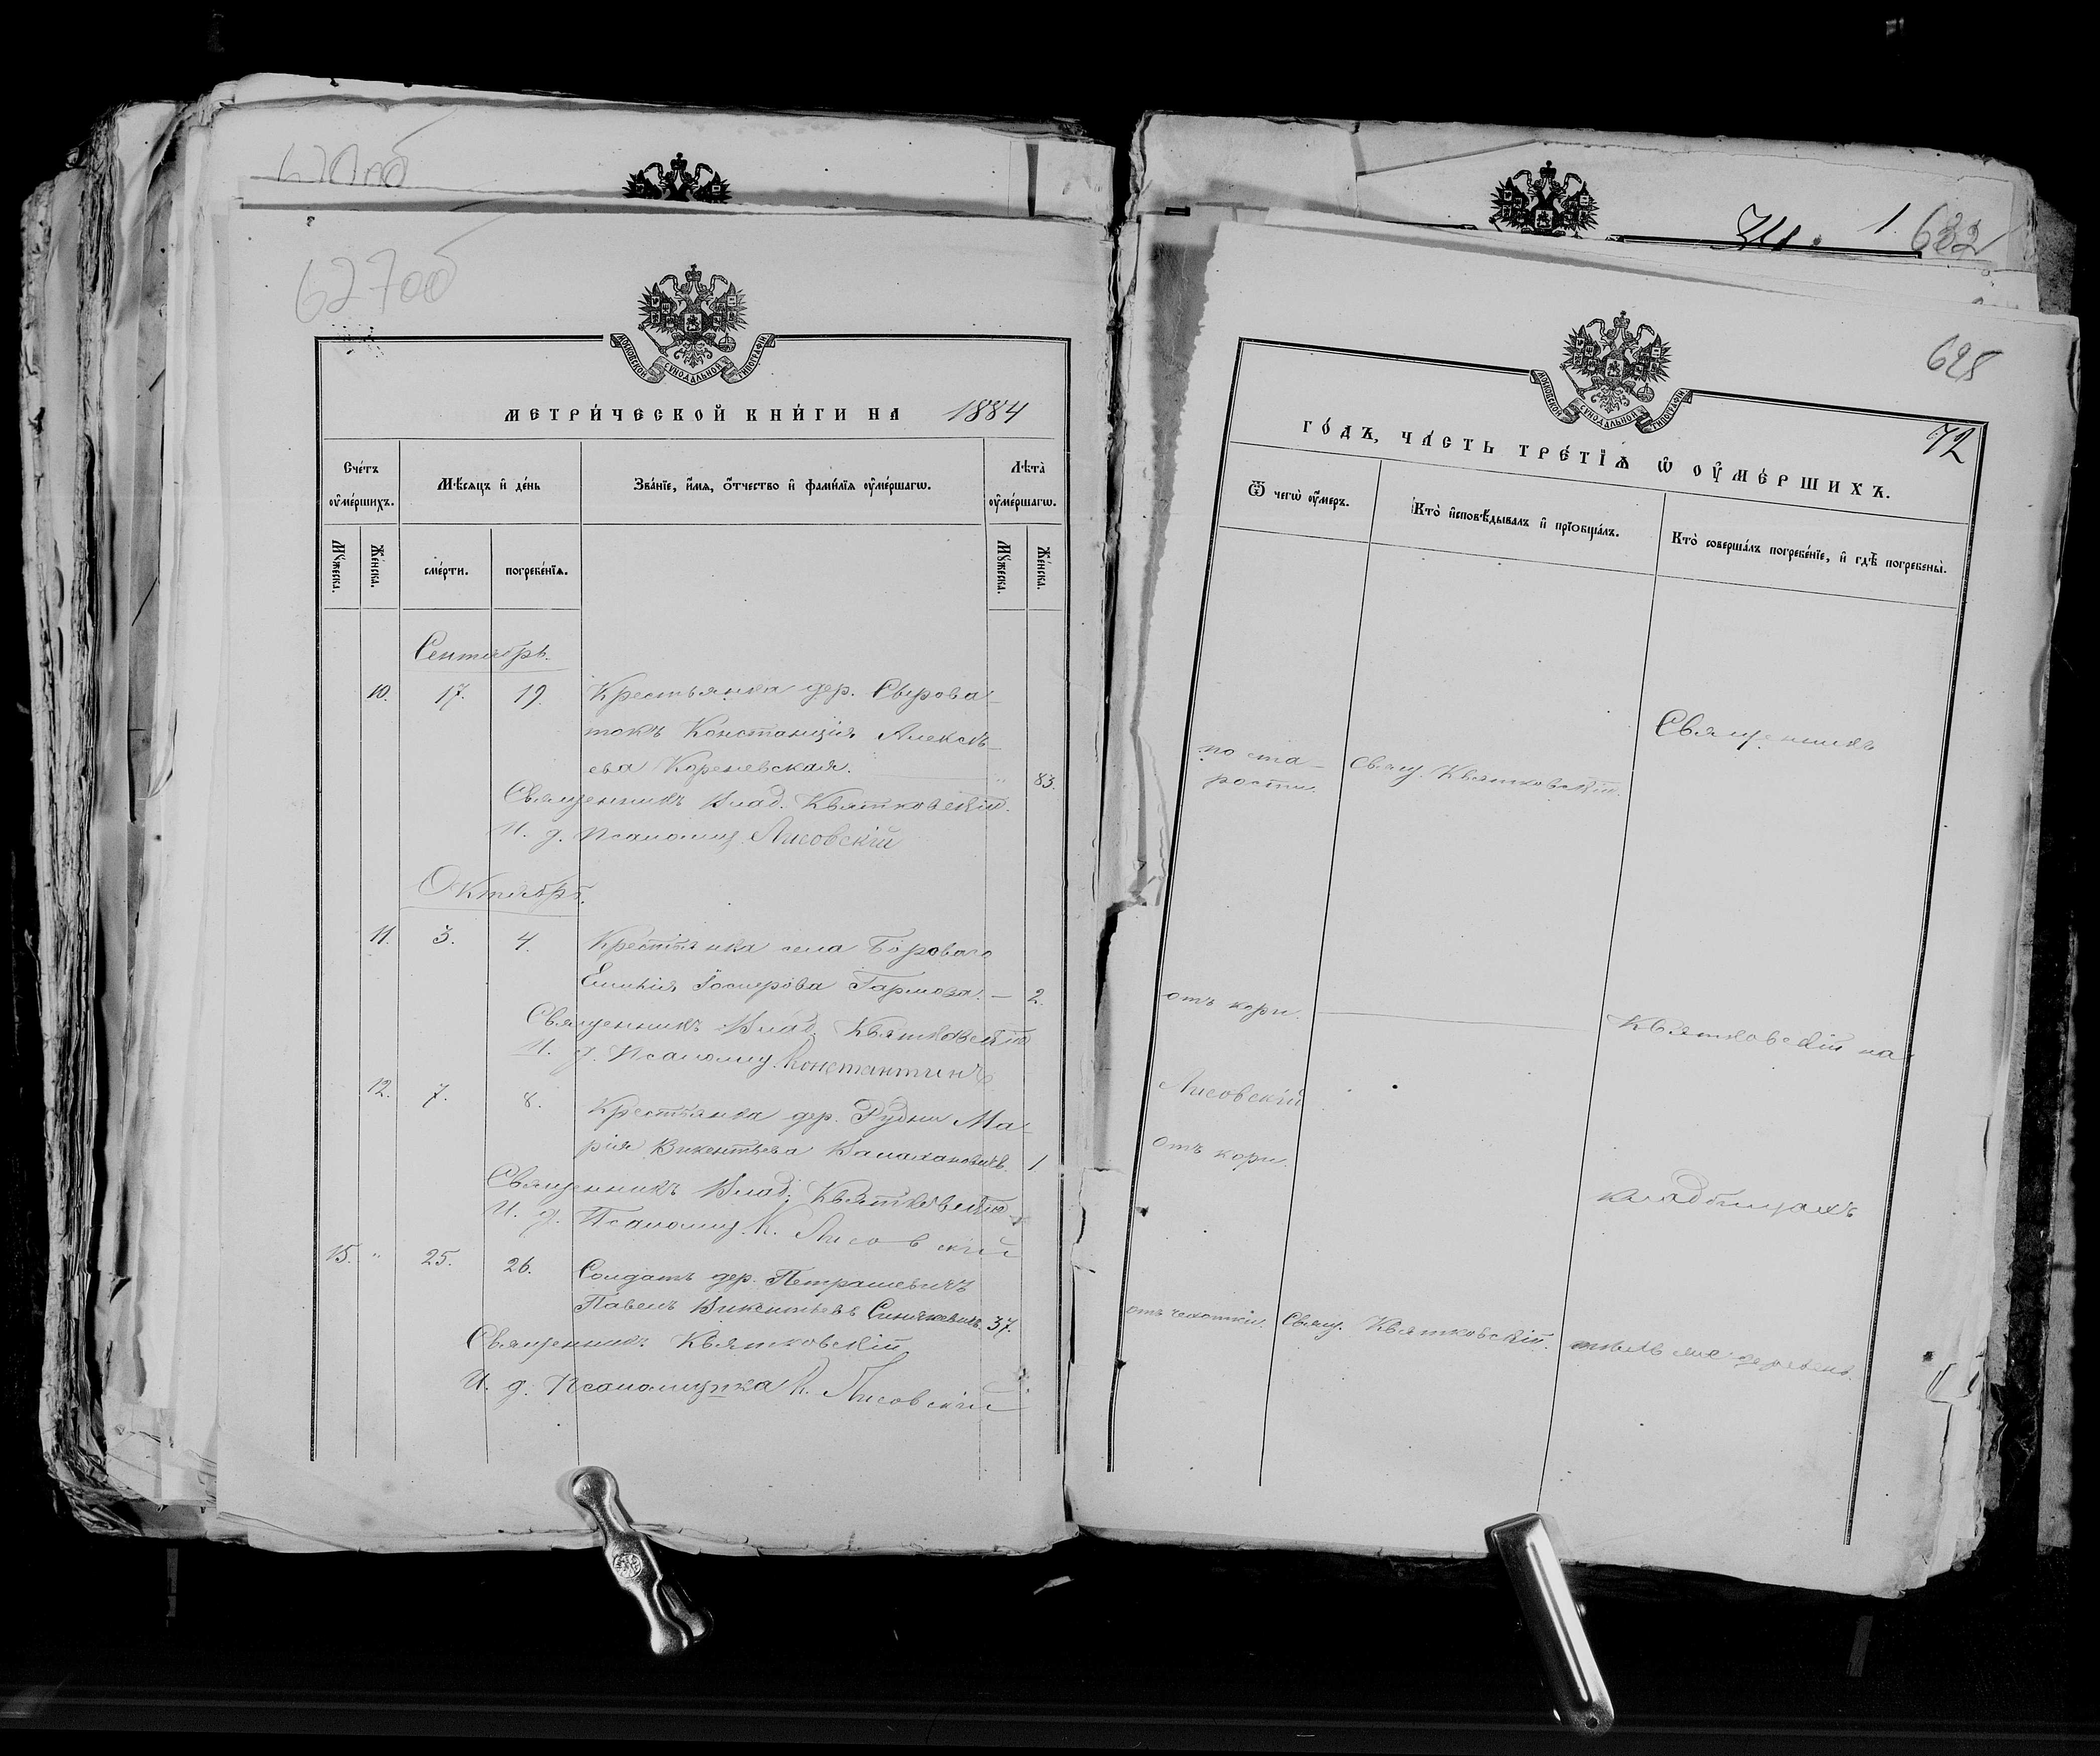 627об
МОСКОВСКОЙ СѴНОДАЛЬНОЙ ТИПОГРАФІИ
МЕТРИ́ЧЕСКОЙ КНИ́ГИ НА 1884
Сче́тъ ᲂу҆ме́ршихъ.
Мѣ́сяцъ и҆ де́нь
Зва́нїе, и҆́мя, ѻ҆́тчество и҆ фами́лїя ᲂу҆ме́ршагѡ.
Лѣта̀ ᲂу҆ме́ршагѡ.
Мꙋ́жеска.
Же́нска.
сме́рти.
погребе́нїѧ.
Мꙋ́жеска.
Же́нска.
Сентябрь.
10. 17. 19. Крестьянка дер. Сырова-
токъ Констанція Алексѣ-
ева Кореневская. " 83.
Священникъ Влад. Квятковскій.
И. д. Псаломщ. Лисовскій
Октябрь.
11. 3. 4. Крестьянка села Бороваго
Гармоза. — 2.
Священникъ Влад. Квятковскій
И. д. Псаломщ. Константинъ
12. 7. 8. Крестьянка дер. Рудни Ма-
рія Викентьева 1.
Священникъ Влад. Квятковскій
И. д. Псаломщ. К. Лисовскій
15. " 25. 26. Солдатъ дер. Петрашевичъ
Павелъ Викентьевъ 37.
Священникъ Квятковскій
И. д. Псаломщика К. Лисовскій
31. 1. 632
628
МОСКОВСКОЙ СѴНОДАЛЬНОЙ ТИПОГРАФІИ
72
ГО́ДЪ, ЧА́СТЬ ТРЕ́ТІѦ Ѡ҆ ОУ҆МЕ́РШИХЪ.
Ѿ чегѡ̀ ᲂу҆́меръ.
Кто̀ и҆сповѣ́дывалъ и҆ прїѡбща́лъ.
Кто̀ соверша́лъ погребе́нїе, и҆ гдѣ̀ погребены̀.
Священникъ
по ста-
рости. Свящ. Квятковскій.
отъ кори. Квятковскій на
Лисовскій
отъ кори.
кладбищахъ
отъ чахотки. Свящ. Квятковскій. деревень.